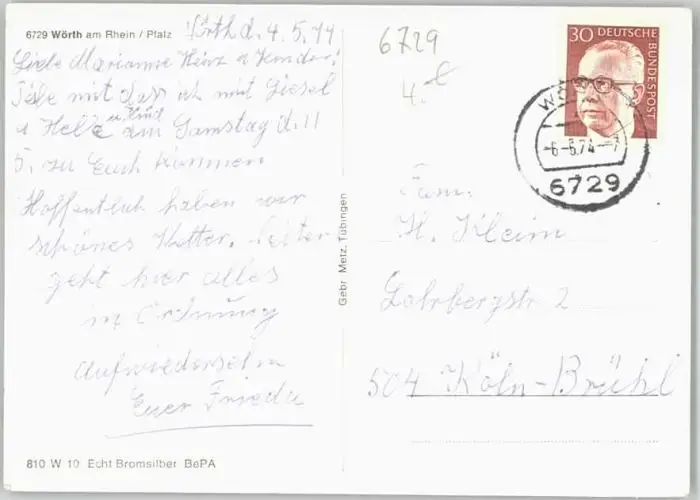 6729 Wörth am Rhein / Pfalz
Wörth d. 4.5.74
Liebe Marianne Heinz u Kinder!
Teile mit das ich mit Giesel
u Hele u. Kind am Samstag d. 11
5. zu Euch kommen
Hoffentlich haben wir
schönes Wetter. Weiter
geht hier alles
in Ordnung
Aufwiedersehn
Euer Frieda
810 W 10 Echt Bromsilber BePA
Gebr. Metz, Tübingen
6729
4.-
30 DEUTSCHE BUNDESPOST
-6-5.74--7
6729
Fam.
H. Kleim
Lohrbergstr 2
504 Köln-Brühl